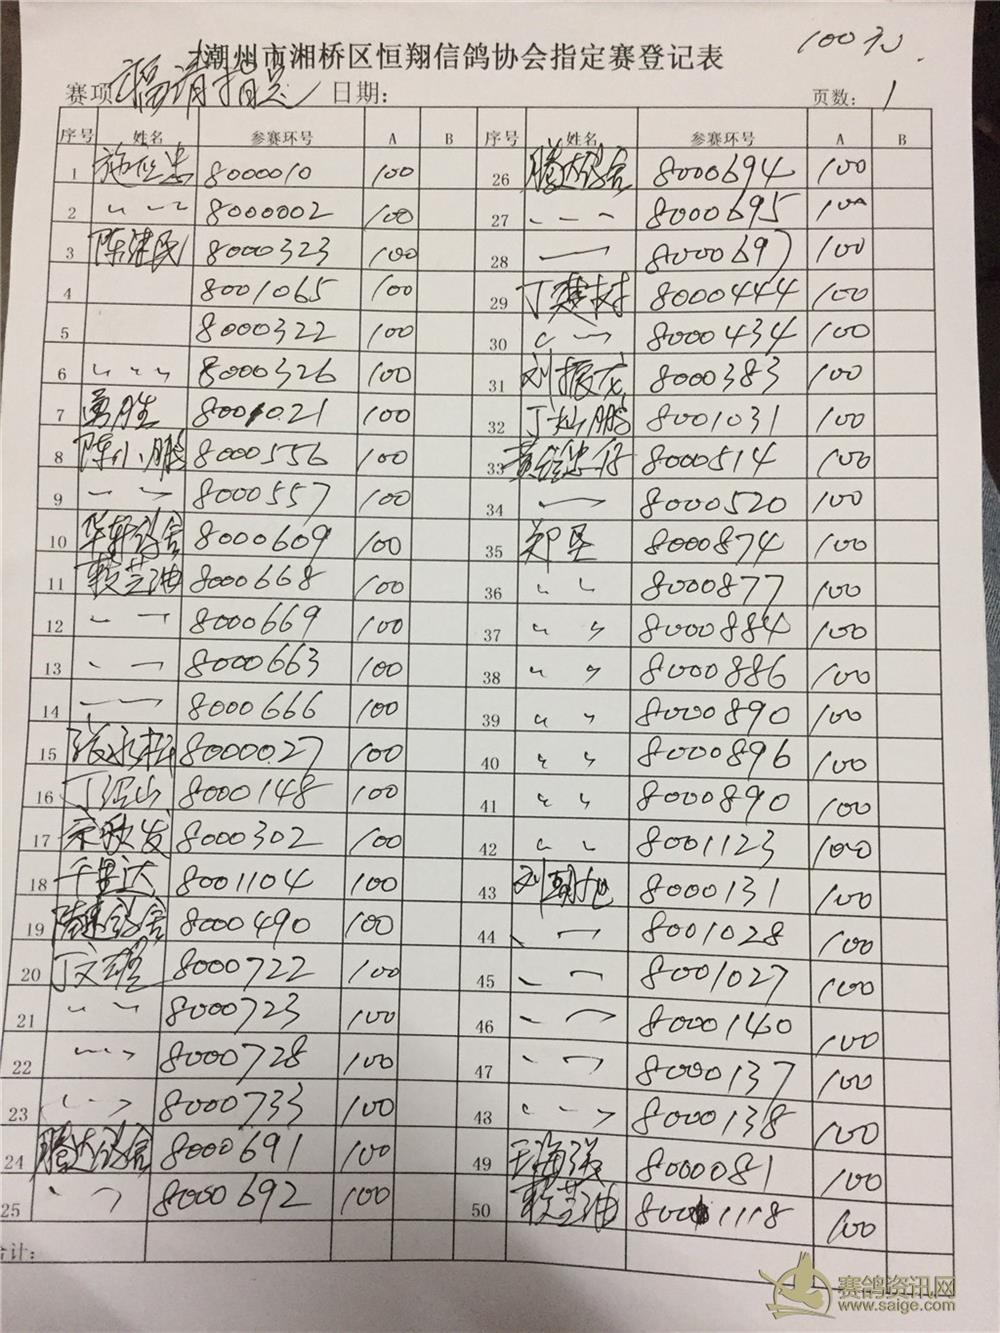 100元
潮州市湘桥区恒翔信鸽协会指定赛登记表
赛项 福清指定 日期： 页数： 1
序号 姓名 参赛环号 A B 序号 姓名 参赛环号 A B
1 8000010 100 26 腾达鸽舍 8000694 100
2 〃 〃 8000002 100 27 8000695 100
3 陈建民 8000323 100 28 8000697 100
4 8001065 100 29 丁建树 8000444 100
5 8000322 100 30 〃 8000434 100
6 〃 〃 〃 8000326 100 31 刘振龙 8000383 100
7 勇胜 8001021 100 32 丁灿鹏 8001031 100
8 陈小鹏 8000556 100 33 8000514 100
9 8000557 100 34 8000520 100
10 华轩鸽舍 8000609 100 35 郑坚 8000874 100
11 8000668 100 36 〃 〃 8000877 100
12 8000669 100 37 〃 〃 8000884 100
13 8000663 100 38 〃 〃 8000886 100
14 8000666 100 39 〃 〃 8000890 100
15 张永彬 8000027 100 40 〃 〃 8000896 100
16 8000148 100 41 〃 〃 8000890 100
17 8000302 100 42 〃 〃 8001123 100
18 千里达 8001104 100 43 刘朝旭 8000131 100
19 8000490 100 44 8001028 100
20 丁文雄 8000722 100 45 8001027 100
21 〃 〃 8000723 100 46 8000140 100
22 8000728 100 47 8000137 100
23 8000733 100 48 8000138 100
24 腾达鸽舍 8000691 100 49 王海强 8000081 100
25 8000692 100 50 8001118 100
合计：
赛鸽资讯网
www.saige.com